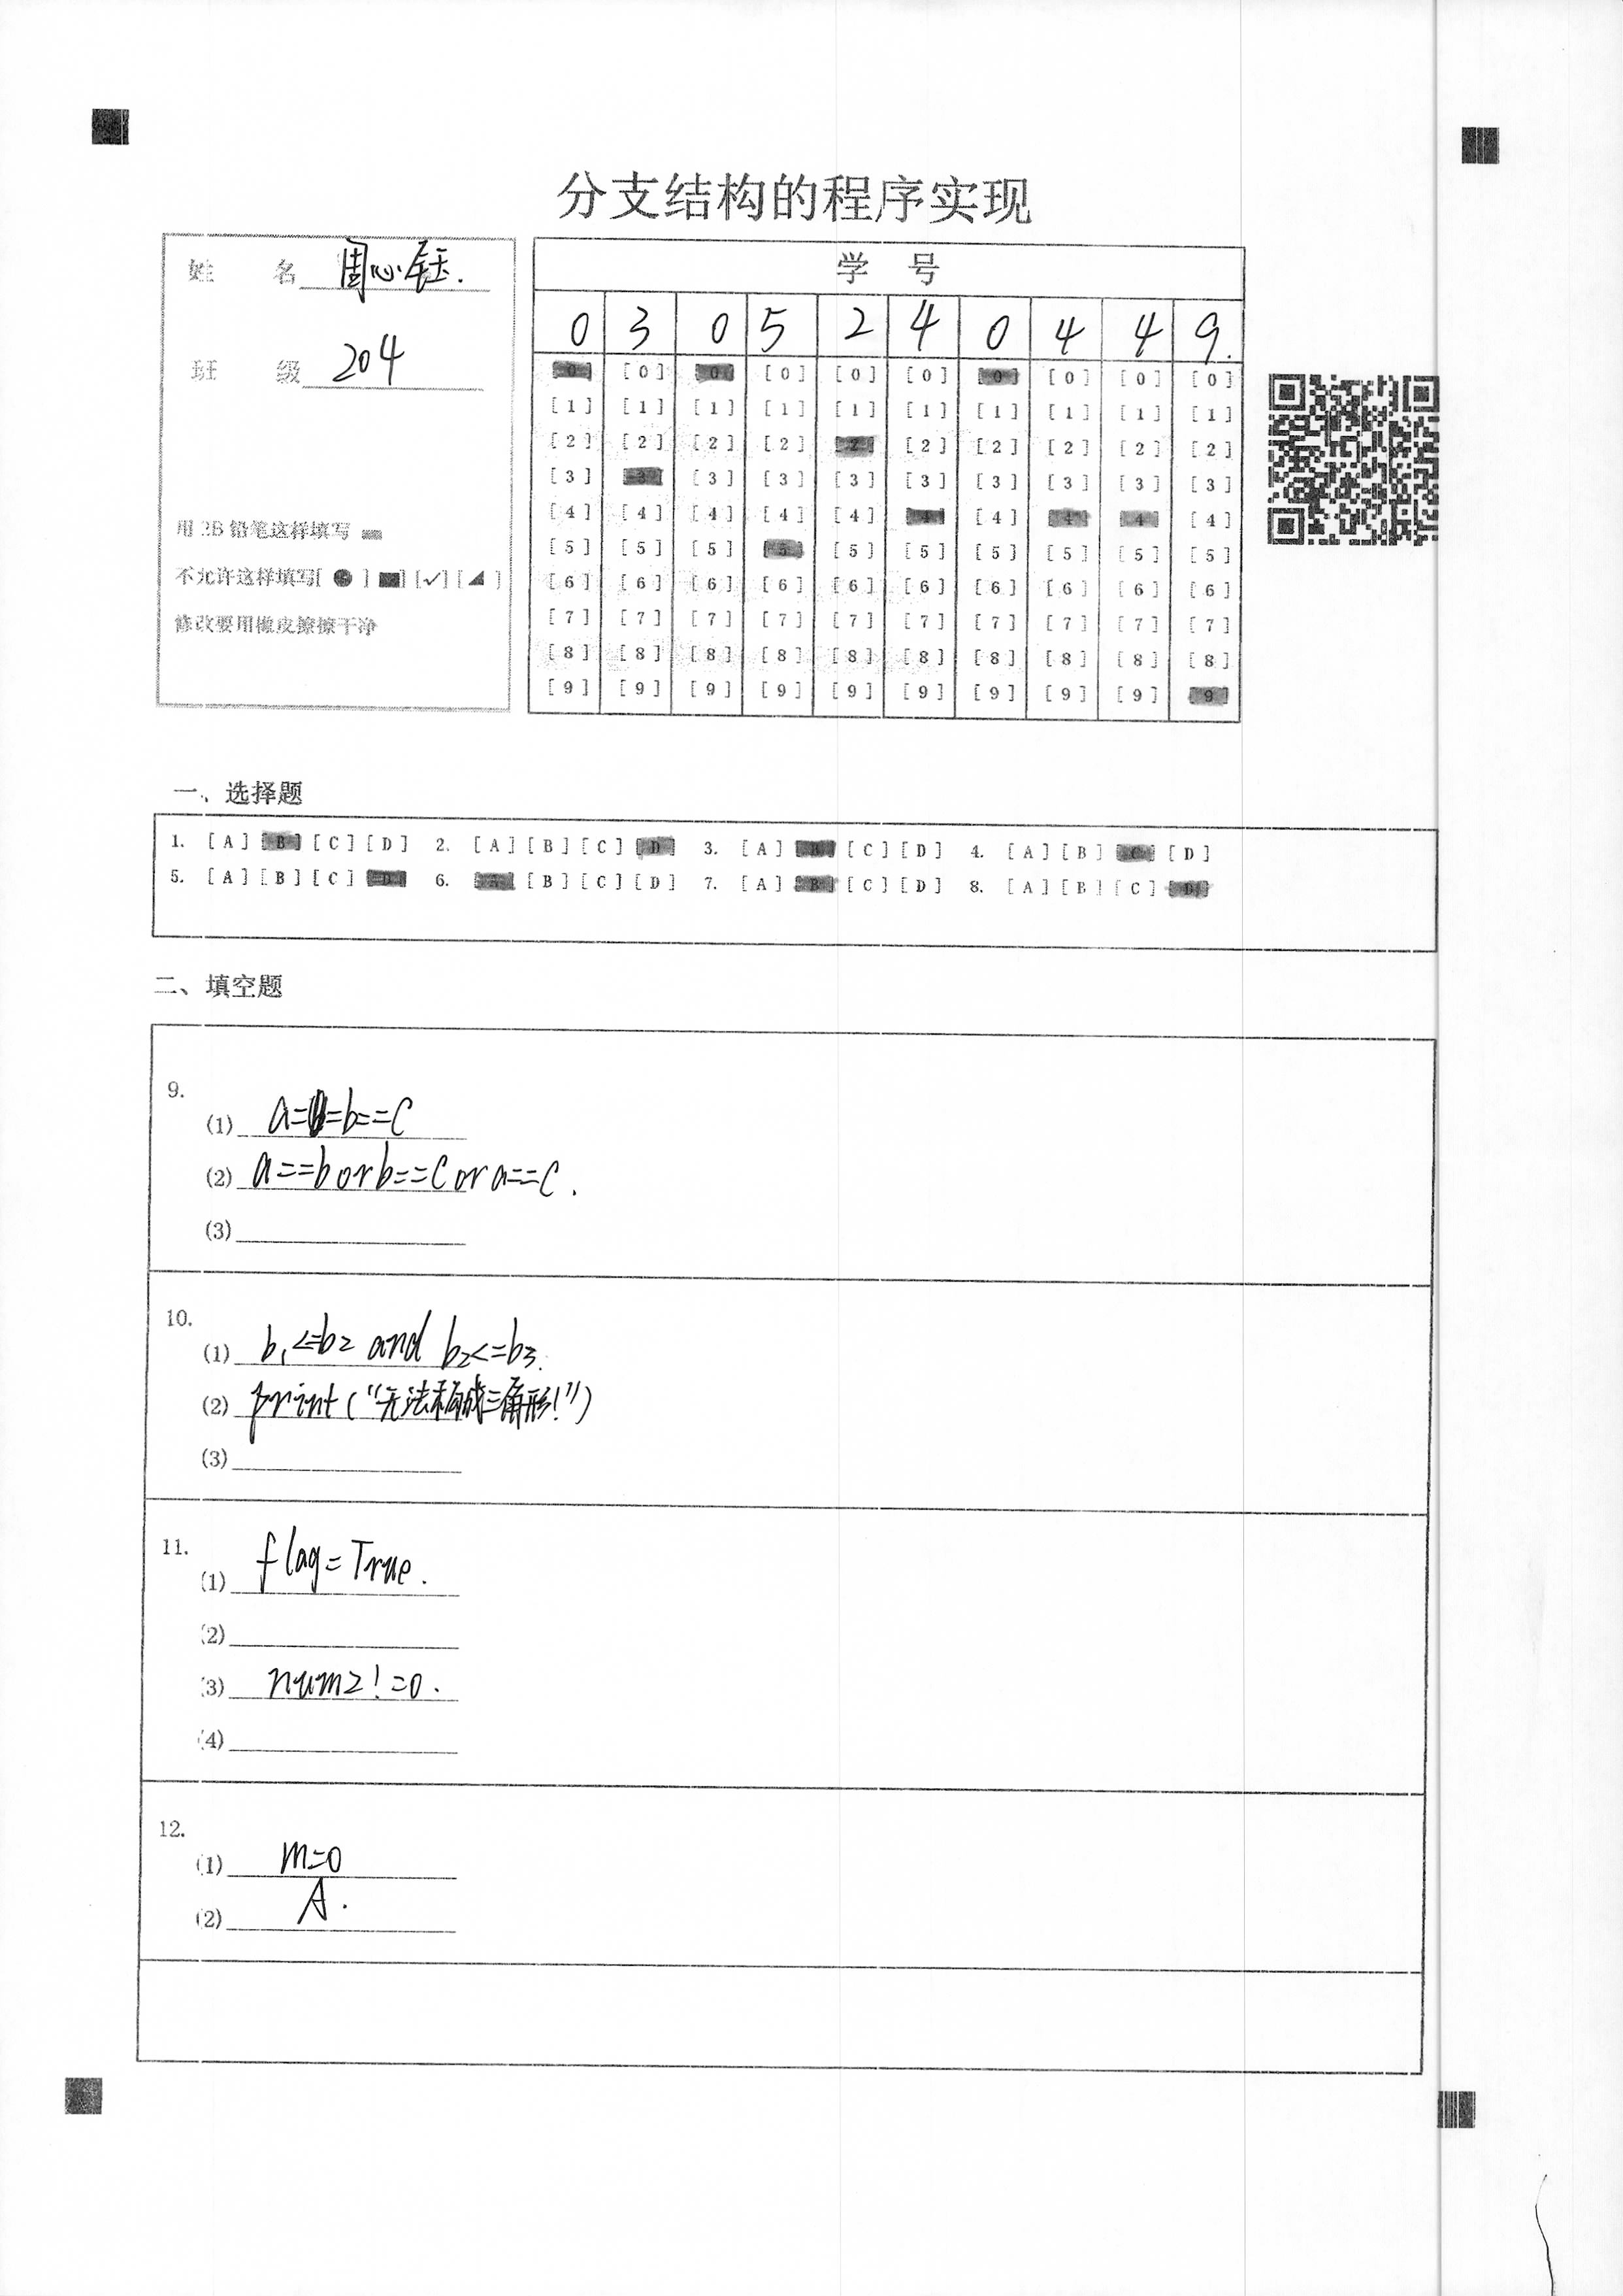 分支结构的程序实现
姓 名 周心钰.
班 级 204
用2B铅笔这样填写
不允许这样填写[ ● ] [✓] [ ◢ ]
修改要用橡皮擦擦干净
学 号
0 3 0 5 2 4 0 4 4 9.
[0] [0] [0] [0] [0] [0] [0] [0] [0] [0]
[1] [1] [1] [1] [1] [1] [1] [1] [1] [1]
[2] [2] [2] [2] [2] [2] [2] [2] [2] [2]
[3] [3] [3] [3] [3] [3] [3] [3] [3] [3]
[4] [4] [4] [4] [4] [4] [4] [4] [4] [4]
[5] [5] [5] [5] [5] [5] [5] [5] [5] [5]
[6] [6] [6] [6] [6] [6] [6] [6] [6] [6]
[7] [7] [7] [7] [7] [7] [7] [7] [7] [7]
[8] [8] [8] [8] [8] [8] [8] [8] [8] [8]
[9] [9] [9] [9] [9] [9] [9] [9] [9] [9]
一、选择题
1. [A] [B] [C] [D] 2. [A] [B] [C] [D] 3. [A] [B] [C] [D] 4. [A] [B] [C] [D]
5. [A] [B] [C] [D] 6. [A] [B] [C] [D] 7. [A] [B] [C] [D] 8. [A] [B] [C] [D]
二、填空题
9.
(1) a==b==c
(2) a==b or b==c or a==c.
(3)
10.
(1) b1<=b2 and b2<=b3.
(2) print("无法构成三角形!")
(3)
11.
(1) flag=True.
(2)
(3) num2!=0.
(4)
12.
(1) m=0
(2) A.